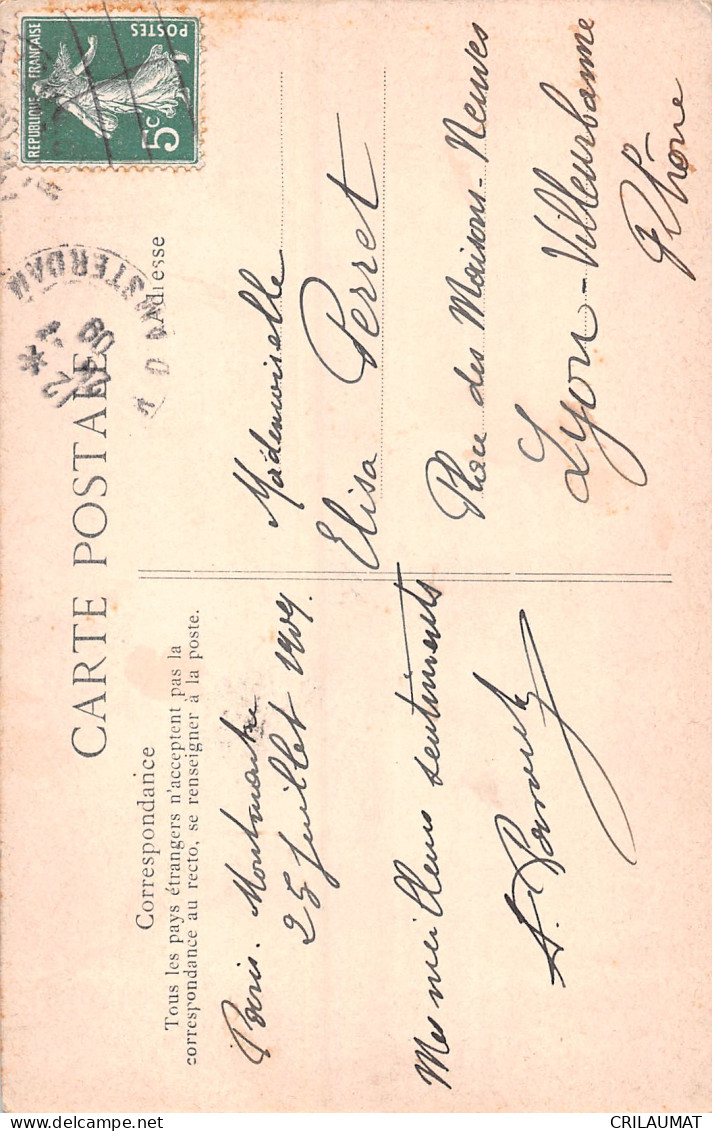 CARTE POSTALE
Correspondance
Tous les pays étrangers n'acceptent pas la
correspondance au recto, se renseigner à la poste.
Adresse
REPUBLIQUE FRANÇAISE
POSTES
5c
STERDAM
09
Paris. Montmartre
25 juillet 1909.
Mes meilleurs sentiments
A.
Mademoiselle
Elisa Perret
Place des Maisons-Neuves
Lyon-Villeurbanne
Rhône
CRILAUMAT